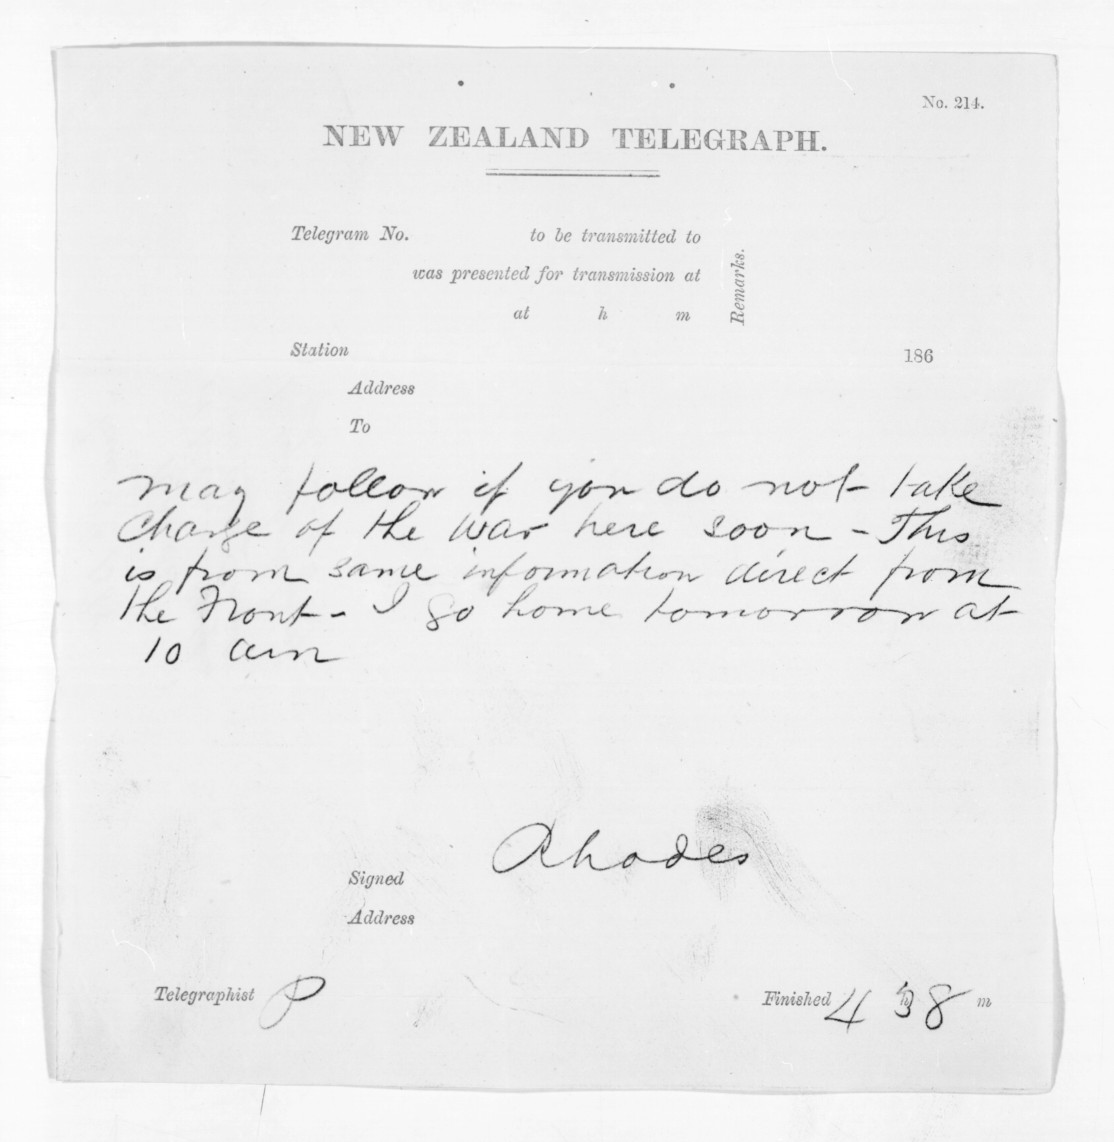 No. 214.
NEW ZEALAND TELEGRAPH.
Telegram No. to be transmitted to
was presented for transmission at
at h m
Remarks.
Station 186
Address
To
may follow if you do not take
charge of the war here soon - This
is from same information direct from
the Front - I go home tomorrow at
10 am
Rhodes
Signed
Address
Telegraphist P Finished 4 h 38 m